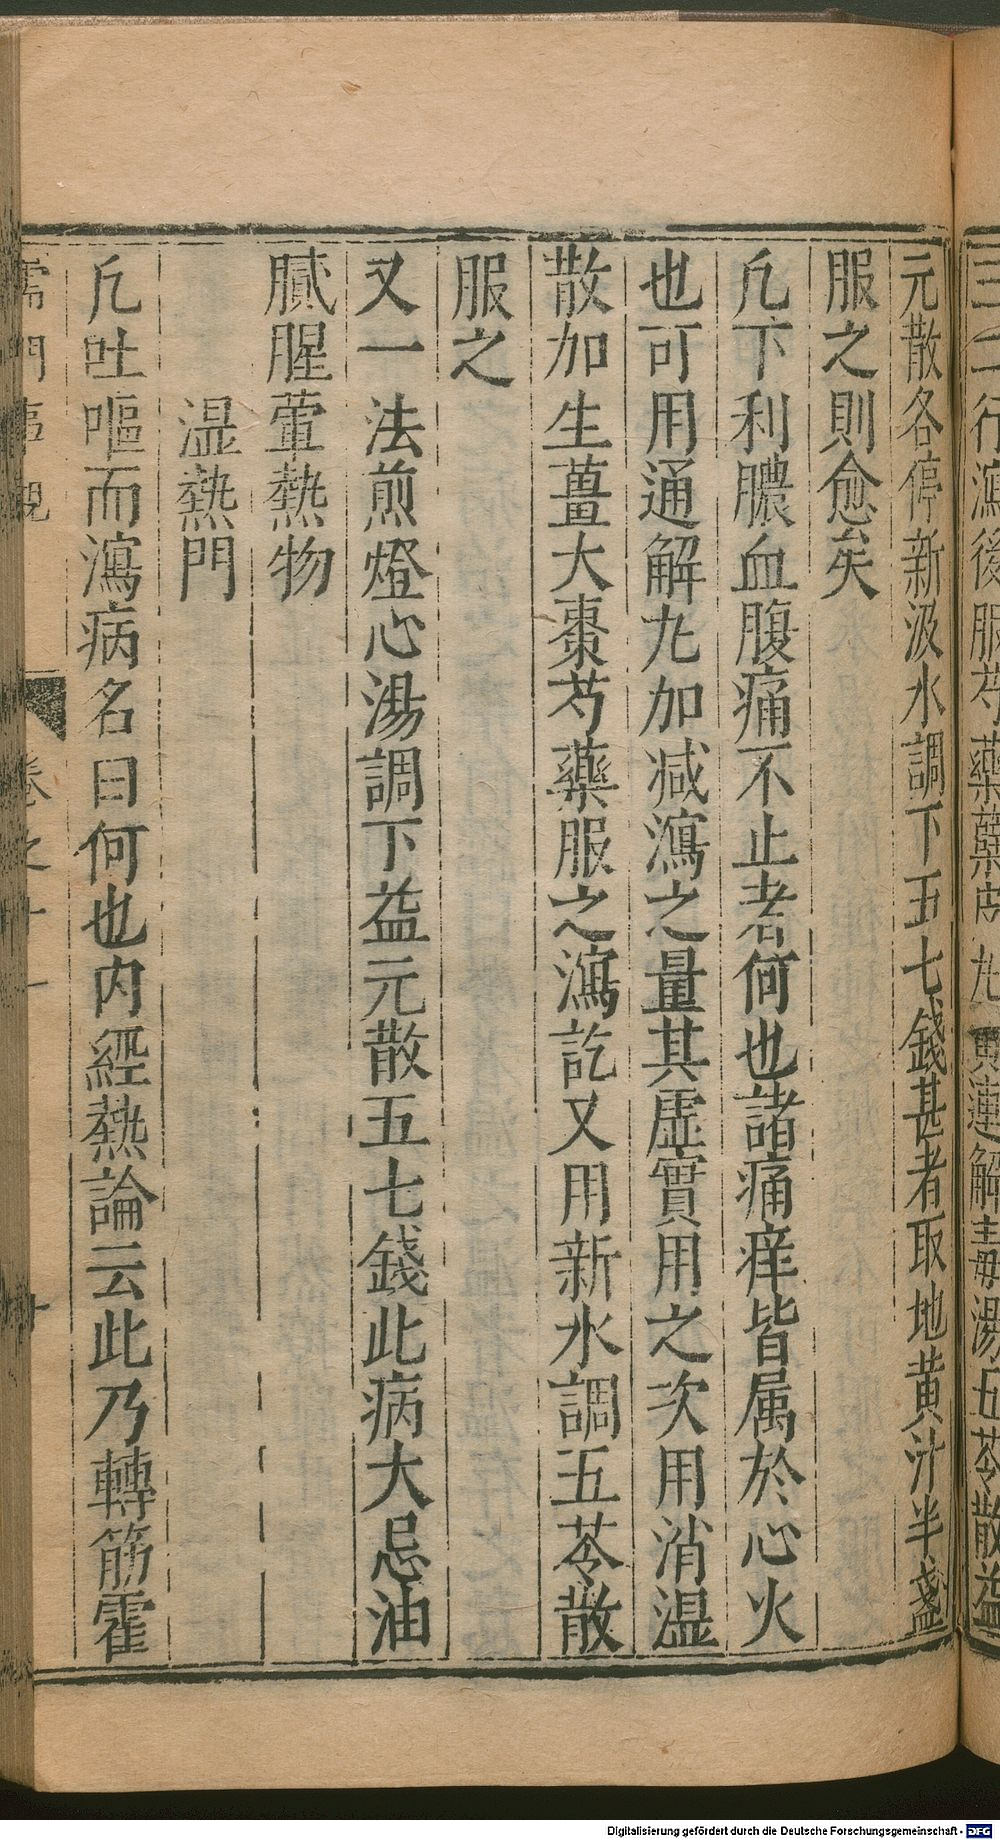 三二行瀉後服芍藥蘗皮丸黄連解毒湯五苓散益
元散各停新汲水調下五七錢甚者取地黄汁半盞
服之則愈矣
凢下利膿血腹痛不止者何也諸痛痒皆属於心火
也可用通解丸加减瀉之量其虛實用之次用消濕
散加生薑大棗芍藥服之瀉訖又用新水調五苓散
服之
又一法煎燈心湯調下益元散五七錢此病大忌油
膩腥葷熱物
濕熱門
凢吐嘔而瀉病名曰何也内經熱論云此乃轉筋霍
儒門事親 卷之十一
Digitalisierung gefördert durch die Deutsche Forschungsgemeinschaft - DFG